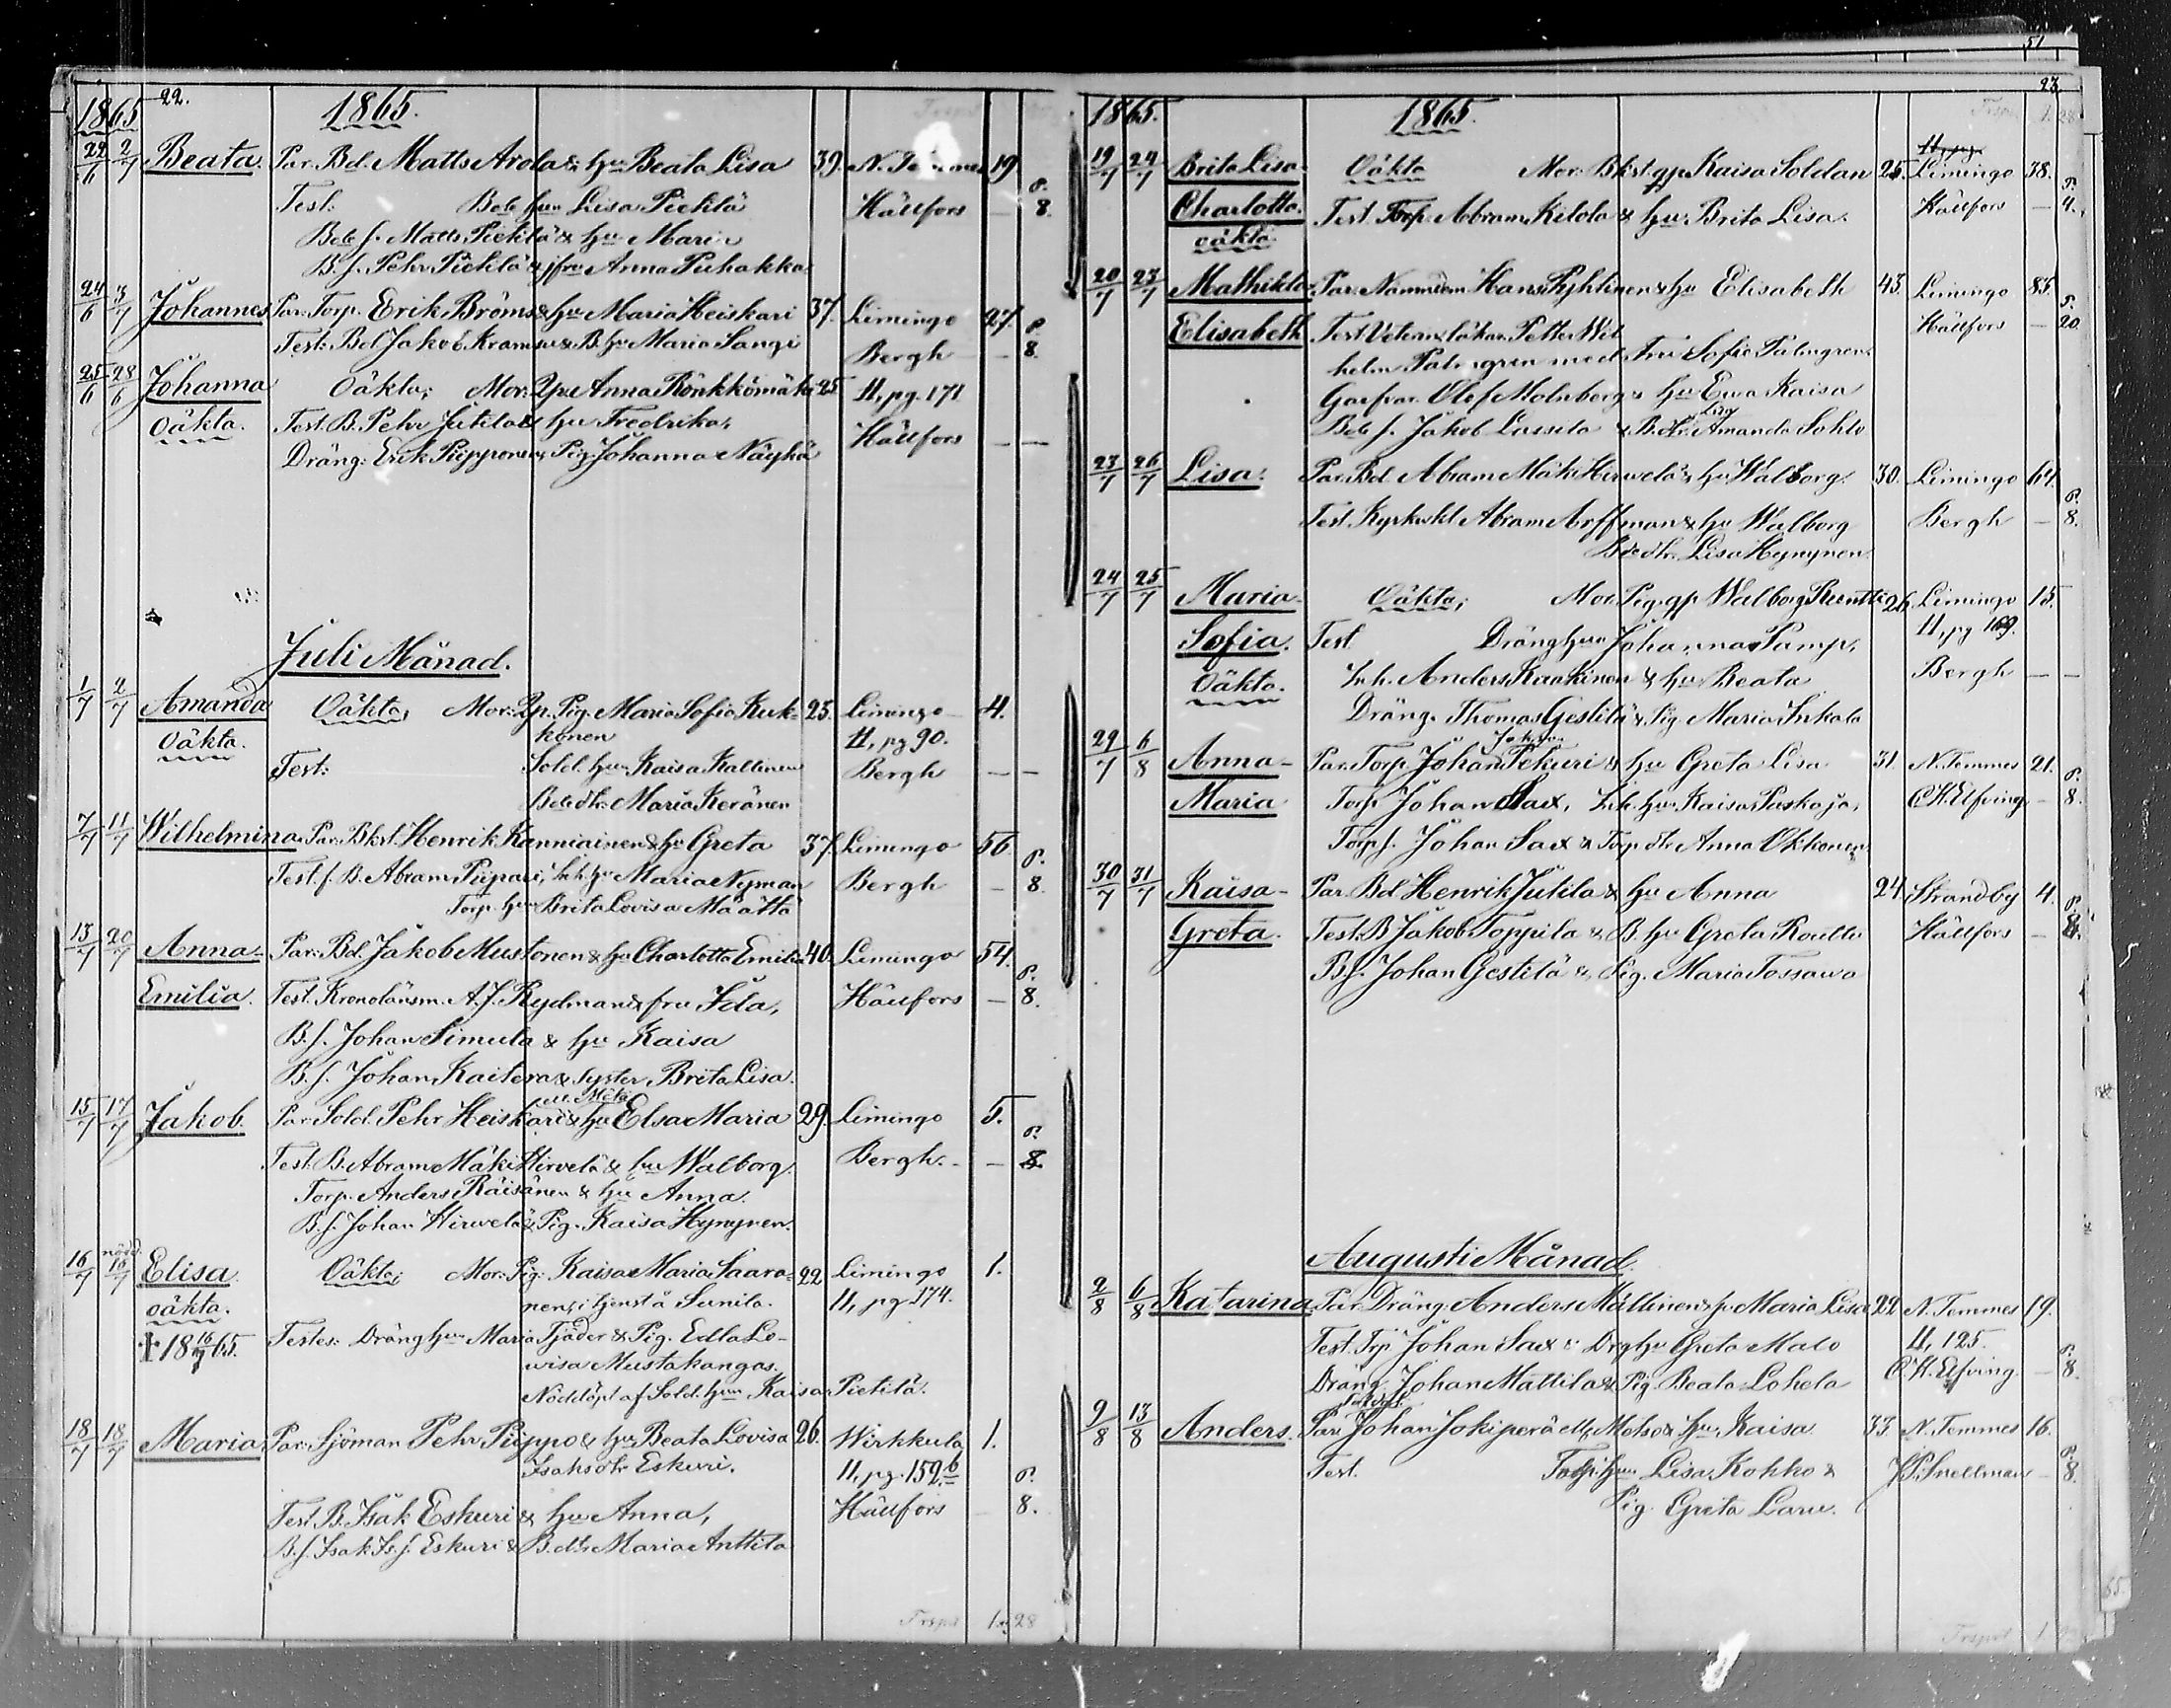 22.
1865 1865.
22/6 2/7 Beata. Par. Bd. Matts Arola & hu Beata Lisa 39. N. Temmes 19
Test. Bde hun Lisa Pietilä Hällfors — 8.
Bde s. Matts Pietilä & hu Maria
B. s. Pehr Pietilä & jfru Anna Puhakka
24/6 3/7 Johannes Par. Torp. Erik Bröms & hu Maria Heiskari 37. Limingo 27.
Test: Bd Jakob Kramsu & B. hu Maria Sangi Bergh — 8.
25/6 28/6 Johanna Oäkta; Mor: Anna Rönkkömäki 25 11, pg. 171
Oäkta. Test. B. Pehr Jutila & hu Fredrika, Hällfors — —
Dräng: Erik Piipponen, Pig. Johanna Näyhä
Juli Månad.
1/7 2/7 Amanda Oäkta, Mor: Qp. Pig. Maria Sofia Kuk- 23. Limingo 4.
Oäkta. konen 11, pg 90.
Test: Sold. hun Kaisa Kallinen Bergh — —
Bde dtr. Maria Keränen
7/7 11/7 Wilhelmina Par. Bkst. Henrik Kanniainen & hu Greta 37. Limingo 56.
Test. f. B. Abram Piipari, Inh. hu Maria Nyman Bergh — 8.
Torp. hun Brita Lovisa Määttä
13/7 20/7 Anna- Par: Bd. Jakob Mustonen & hu Charlotta Emilia 40. Limingo 54.
Emilia. Test. Kronolänsm. A. J. Rydman & fru Ida, Hällfors — 8.
B. s. Johan Simula & hu Kaisa
B. s. Johan Kaitera & syster Brita Lisa.
15/7 17/7 Jakob. Par. Sold. Pehr Heiskari & hu Elsa Maria 29. Limingo 5.
Test. B. Abram Mäki Hirvelä & hu Walborg. Bergh. — 8.
Torp. Anders Räisänen & hu Anna.
B. s. Johan Hirvelä & Pig. Kaisa Hynynen.
16/7 nödd. 16/7 Elisa Oäkta; Mor: Pig: Kaisa Maria Saara- 22 Limingo 1.
oäkta. nen, i tjenst å Sunila. 11, pg 174.
† 18 16/7 65. Testes: Dräng hun Maria Tjäder & Pig. Edla Lo-
wisa Mustakangas.
Nöddöpt af Sold. hun Kaisa Pietilä.
18/7 18/7 Maria Par. Sjöman Pehr Piippo & hu Beata Lovisa 26. Wirkkula 1.
Isaksdtr Eskuri. 11, pg. 159. b
Test. B. Isak Eskuri & hu Anna, Hällfors — 8.
B. s. Isak Is. s. Eskuri & B. dtr Maria Anttila
Trspt 1 28
51
23
1865. 1865.
Trspt 1. 28
19/7 24/7 Brita Lisa Oäkta Mor: Bkst. qp. Kaisa Soldan 25. Limingo 38.
Charlotta. Test. Torp. Abram Kilola & hu Brita Lisa. Hällfors — 4.
oäkta.
20/7 23/7 Mathilda Par. Nämndem. Hans Pyhtinen & hu Elisabeth 43. Limingo 85.
Elisabeth Test. Veterinärläkar. Petter Wil- Hällfors — 20
helm Palmgren med Fru Sofie Palmgren.
Garfvar. Olof Molnberg & hu Ewa Kaisa
Bde s. Jakob Lassila & B. dtr. Amanda Sohlo
23/7 26/7 Lisa. Par. Bd. Abram Mäki Hirvelä & hu Walborg. 30. Limingo 64.
Test. Kyrkvkt. Abram Arffman & hu Walborg Bergh — 8.
Bde dtr. Lisa Hynynen
24/7 25/7 Maria- Oäkta; Mor. Pig. qp Walborg Ruentti 26. Limingo 15.
Sofia. Test Dräng hun Johanna Pamp, 11, pg 169.
Oäkta. Inh. Anders Kaakinen & hu Beata Bergh — —
Dräng. Thomas Gestilä & Pig. Maria Inkala
29/7 6/8 Anna- Par. Torp. Johan Pekuri & hu Greta Lisa 31. N. Temmes 21.
Maria Torp Johan Sax, Inh. hu Kaisa Paskoja, C. H. Elfving — 8.
Torp s. Johan Sax & Torp dtr Anna Okkonen
30/7 31/7 Kaisa- Par. Bd. Henrik Jutila & hu Anna 24. Strandby 4.
Greta. Test. B Jakob Toppila & B. hu Greta Roullu Hällfors — 8.
B. s. Johan Gestilä & Pig. Maria Tossawa
Augusti Månad.
2/8 6/8 Katarina Par. Dräng. Anders Mällinen & hu Maria Lisa 22 N. Temmes 19.
Test. Trp Johan Sax & Drg hu Greta Malo 11, 125.
Dräng Johan Mattila & Pig. Beata Lohela C. H. Elfving. — 8
9/8 13/8 Anders. Par. Johan Jokiperä ell. Matso & hu Kaisa 33. N. Temmes 16.
Test. Torp. hun Lisa Kokko & J. P. Snellman — 8
Pig. Greta Laru.
Trspt 1